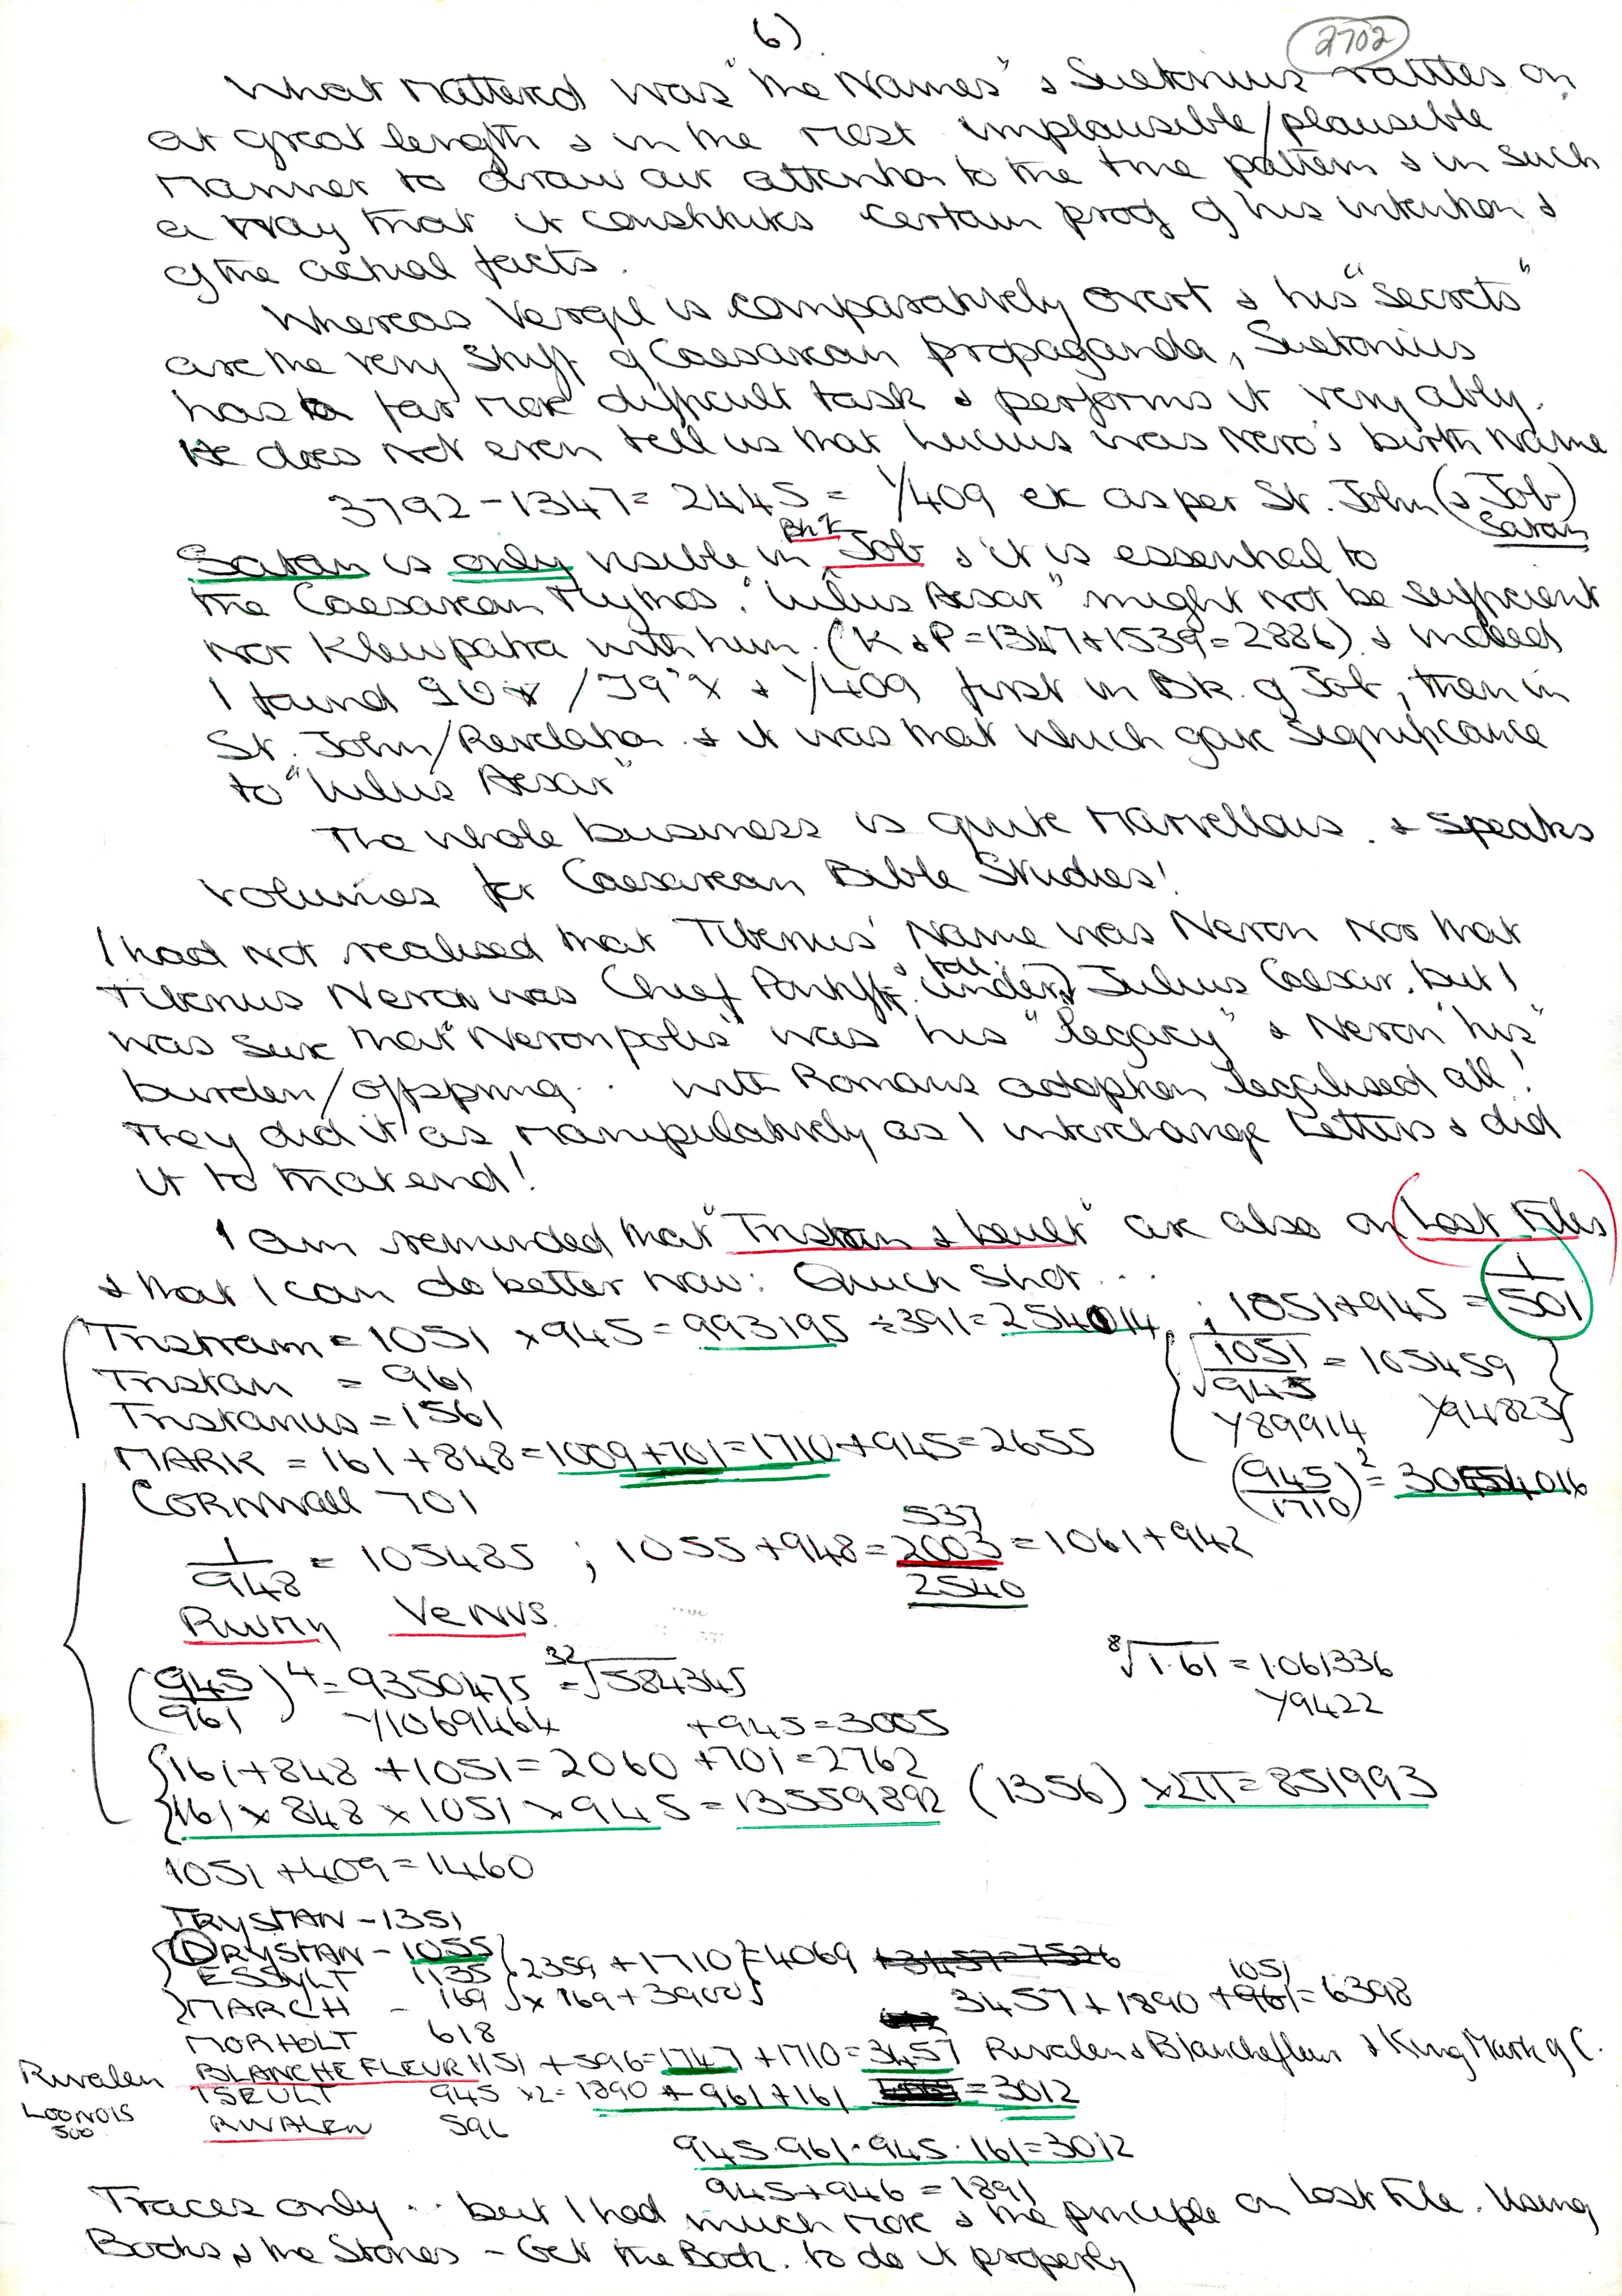 6)
2702
What Mattered was "the Names" & Suetonius rattles on
at great length & in the most implausible/plausible
manner to draw our attention to the true pattern & in such
a way that it constitutes certain proof of his intention &
of the actual facts.
Whereas Vergil is comparatively overt & his "Secrets"
are the very stuff of Caesarean propaganda, Suetonius
has a far more difficult task & performs it very ably.
He does not even tell us that Lucius was Nero's birth name
3792 - 1347 = 2445 = 1/409 etc as per St. John (& Job)
Satan
Satan is only visible in Bk. Job & it is essential to
the Caesarean Mythos. "Iulius Aesar" might not be sufficient
nor Klewpatra with him. (K & P = 1347 + 1539 = 2886) & indeed
I found / & 1/409 first in Bk. of Job, then in
St. John/Revelation & it was that which gave significance
to "Iulius Aesar"
The whole business is quite marvellous. & speaks
volumes for Caesarean Bible Studies!
I had not realised that Tiberius' Name was Neron nor that
Tiberius Neron was Chief Pontiff under Julius Caesar, but I
was sure that "Neronpolis" was his "legacy" & Neron "his"
burden/offspring.. with Romans adoption legalised all!
They did it as manipulatively as I interchange Letters & did
it to that end!
I am reminded that "Tristan & Iseult" are also on Lost Files
& that I can do better now: Quick Shot...
Tristram = 1051 × 945 = 993195 ÷ 391 = 254014 ; 1051 + 945 = 1/501
Tristan = 961
√1051/945 = 105459
Tristanus = 1561
Y89914 Y94823
MARK = 161 + 848 = 1009 + 701 = 1710 + 945 = 2655
(945/1710)² = 30454016
CORNWALL 701
1/948 = 105485 ; 1055 + 948 = 2003 = 1061 + 942
537
2540
RWMH VENVS
(945/961)⁴ = 9350475 = ³²√584345
⁸√1.61 = 1.061336
Y1069464 + 945 = 3005
Y9422
161 + 848 + 1051 = 2060 + 701 = 2762
161 × 848 × 1051 × 945 = 13559892 (1356) × 2π = 851993
1051 + 409 = 1460
TRYSTAN - 1351
DRYSTAN - 1055 2359 + 1710 = 4069 + 3457 = 7526
ESSYLT 1135
MARCH - 169 × 169 + 3900 3457 + 1890 + 961 = 6398
1051
MORHOLT 618
Rivalen BLANCHEFLEUR 1151 + 596 = 1747 + 1710 = 3457 Rivalen & Blanchefleur & King Mark of C.
ISEULT 945 × 2 = 1890 + 961 + 161 = 3012
LOONOIS
500
RIVALEN 596
945 · 961 · 945 · 161 = 3012
945 + 946 = 1891
Traces only .. but I had much more & the principle on Lost File. Using
Books & the Stories - Get the Book. to do it properly